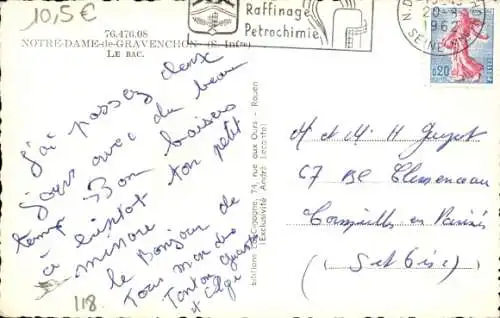 10,5€
76.476.08
NOTRE-DAME-de-GRAVENCHON (S.-Infre)
LE BAC.
Raffinage
Petrochimie
20
196
SEINE
0,20
j'ai passez deux
jours avec du beau
temp Bon baisers
à bientot ton petit
minore.
le Bonjour de
Tous mon
Tonton
et
118
Editions La Cigogne, 74, rue aux Ours - Rouen
(Exclusivité André Leconte)
M et M H Guyot
67 BD Clemenceau
Cormeilles en Parisis
(S et Oise)